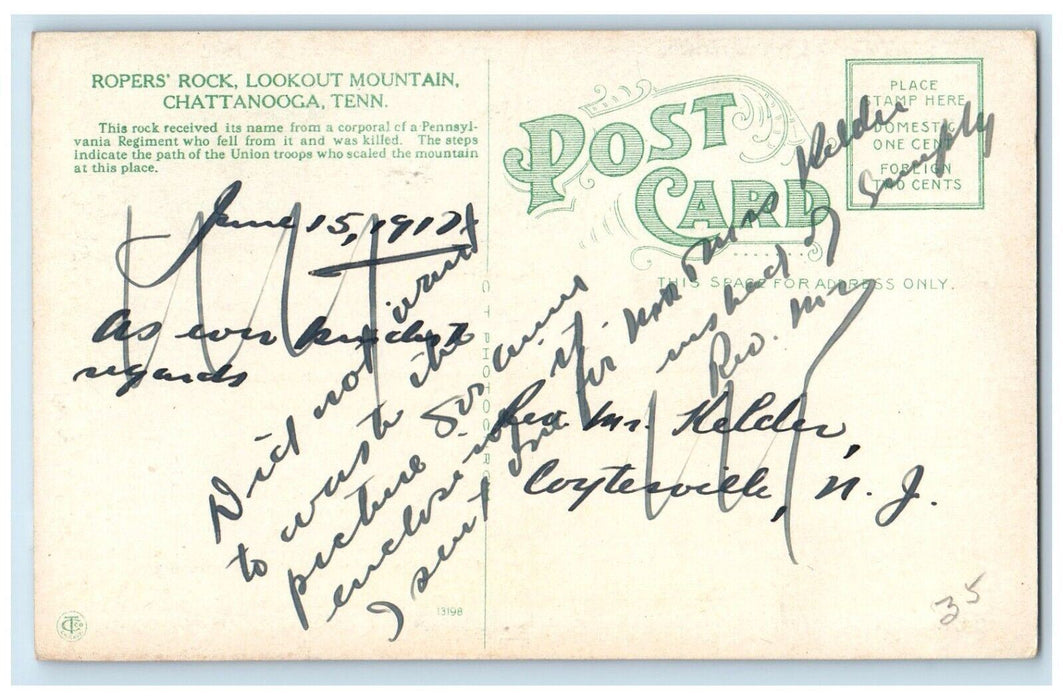 ROPERS' ROCK, LOOKOUT MOUNTAIN,
CHATTANOOGA, TENN.
This rock received its name from a corporal of a Pennsyl-
vania Regiment who fell from it and was killed. The steps
indicate the path of the Union troops who scaled the mountain
at this place.
June 15, 1917
As ever kindest
regards
Did not want
to waste the
picture so am
enclosing it.
I sent one for Mrs Kelder
instead of simply
Rev. Mr.
POST
CARD
PLACE
STAMP HERE
DOMESTIC
ONE CENT
FOREIGN
TWO CENTS
THIS SPACE FOR ADDRESS ONLY.
Rev. Mr. Kelder,
Coytesville, N. J.
13198
35